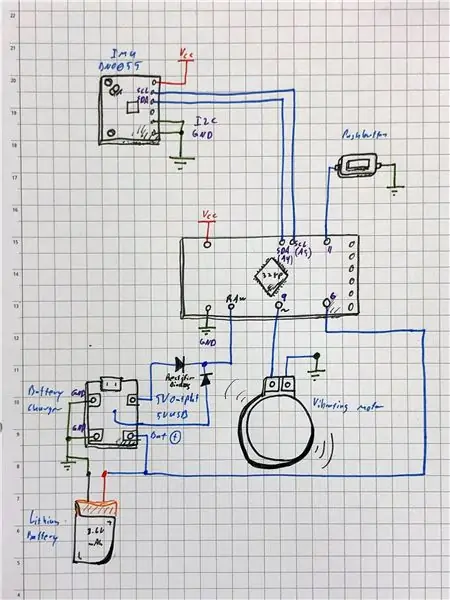 IMU
BNO055
Vcc
SCL
SDA
I2C
GND
Pushbutton
Vcc
SDA
(A4)
SCL
(A5)
11
328P
RAW
9
~
6
GND
Rectifier
Diodes
Battery
Charger
GND
5V output
5V USB
GND
Bat +
Vibrating motor
Lithium
Battery
3.6V
mAh
+
22
20
19
18
17
16
15
14
13
12
11
10
9
8
7
6
5